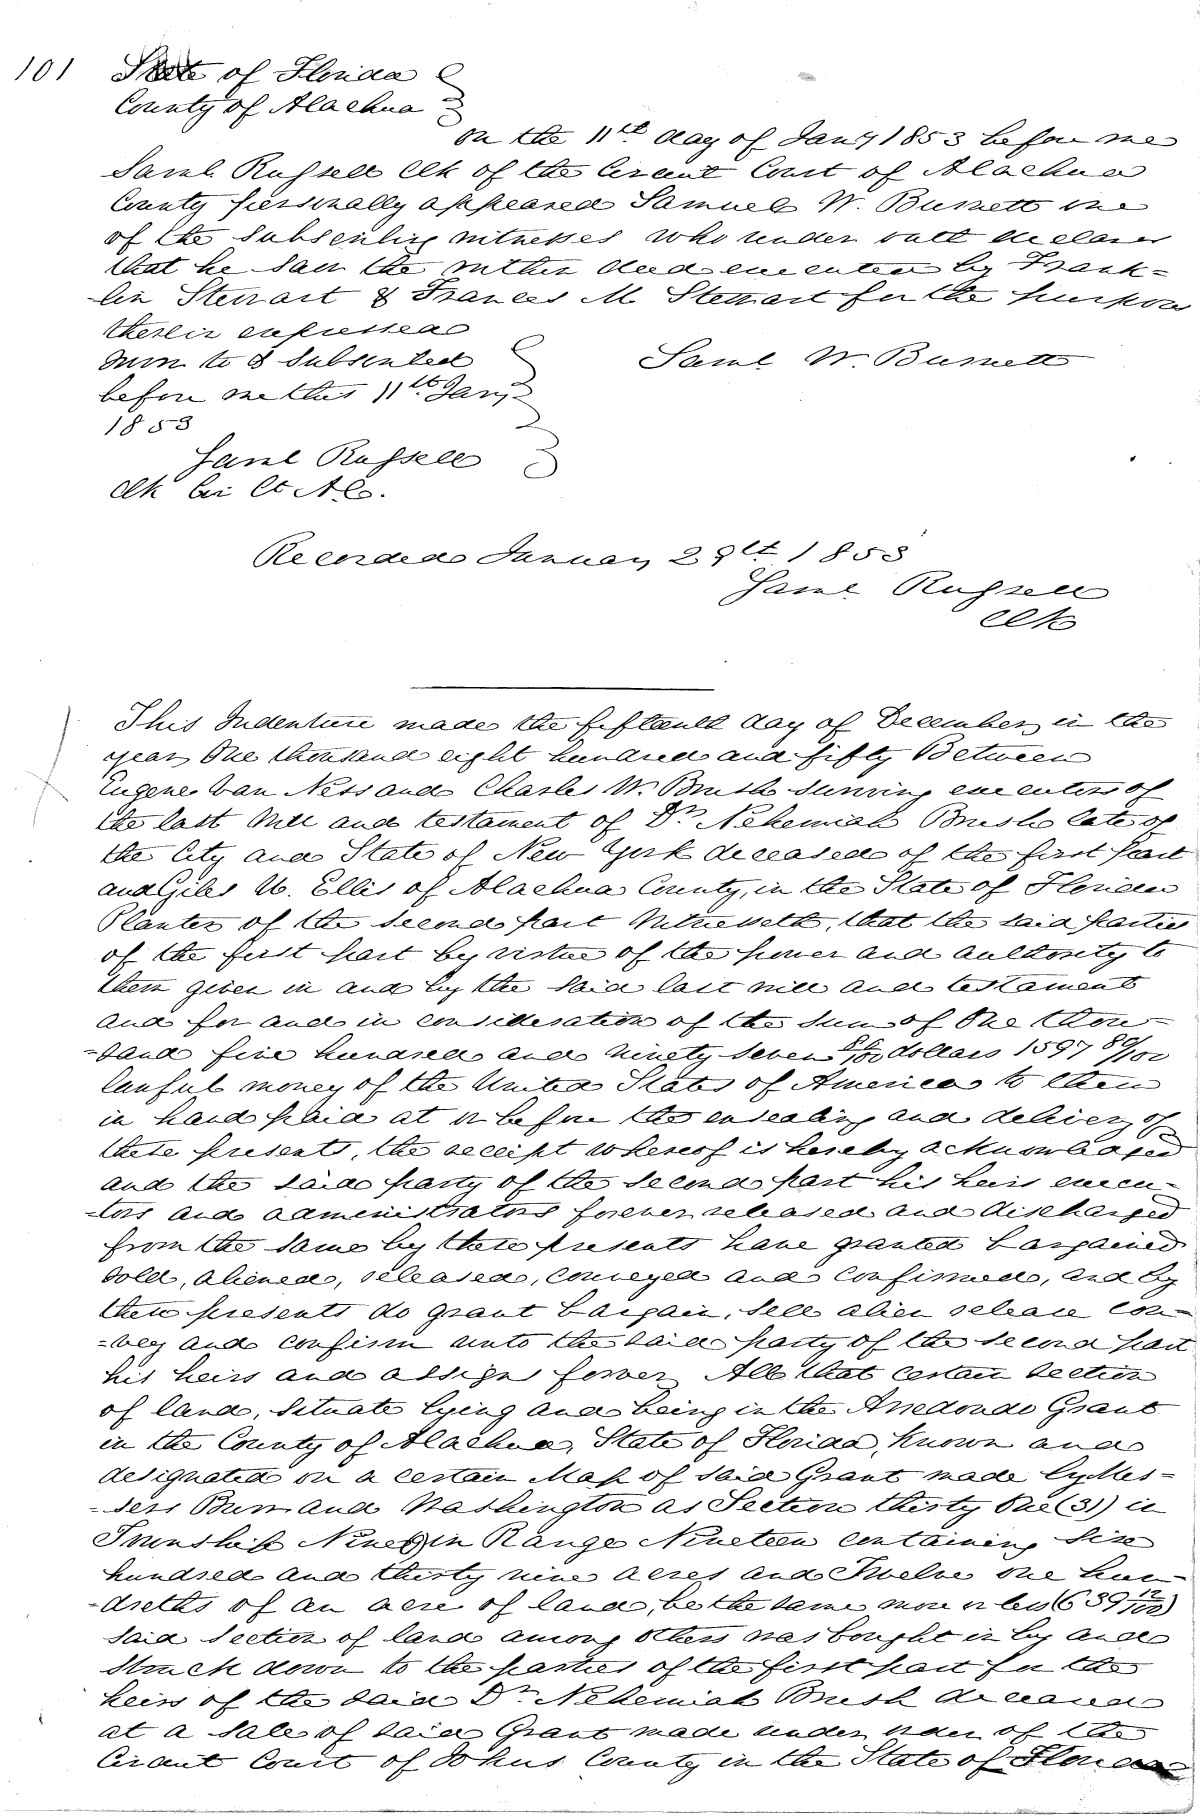 101 State of Florida
County of Alachua
on the 11th day of Jany 1853 before me
Saml Russell Clk of the Circuit Court of Alachua
County personally appeared Samuel W. Burnett one
of the subscribing witnesses who under oath declares
that he saw the within deed executed by Frank=
-lin Stewart & Frances M Stewart for the purpose
therein expressed
sworn to & subscribed
before me this 11th Jany
1853
Saml W. Burnett
Saml Russell
Clk Cir Ct A.Co.
Recorded January 29th 1853
Saml Russell
Clk
This Indenture made the fifteenth day of December, in the
year, One thousand eight hundred and fifty Between
Eugene Van Ness and Charles W. Brush surviving executors of
the last Will and testament of Dr. Nehemiah Brush late of
the City and State of New York deceased of the first part
and Giles U. Ellis of Alachua County, in the State of Florida
Planter of the second part Witnesseth, that the said parties
of the first part by virtue of the power and authority to
them given in and by the said last will and testament
and for and in consideration of the sum of One thou=
=sand five hundred and ninety seven 80/100 dollars 1597 80/100
lawful money of the United States of America to them
in hand paid at or before the ensealing and delivery of
these presents, the receipt whereof is hereby acknowledged
and the said party of the second part his heirs execu-
-tors and administrators forever released and discharged
from the same by these presents have granted bargained
sold, aliened, released, conveyed and confirmed, and by
these presents do grant bargain, sell alien release con=
=vey and confirm unto the said party of the second part
his heirs and assigns forever, All that certain section
of land, situate lying and being in the Arredondo Grant
in the County of Alachua, State of Florida, known and
designated on a certain Map of said Grant made by Mes=
-sers Burr and Washington as Section thirty One (31) in
Township Nine (9) in Range Nineteen containing Six
hundred and thirty nine acres and Twelve one hun-
-dreths of an acre of land, be the same more or less (639 12/100)
said section of land among others was bought in by and
struck down to the parties of the first part for the
heirs of the said Dr. Nehemiah Brush deceased
at a sale of said Grant made under order of the
Circuit Court of St Johns County in the State of Florida